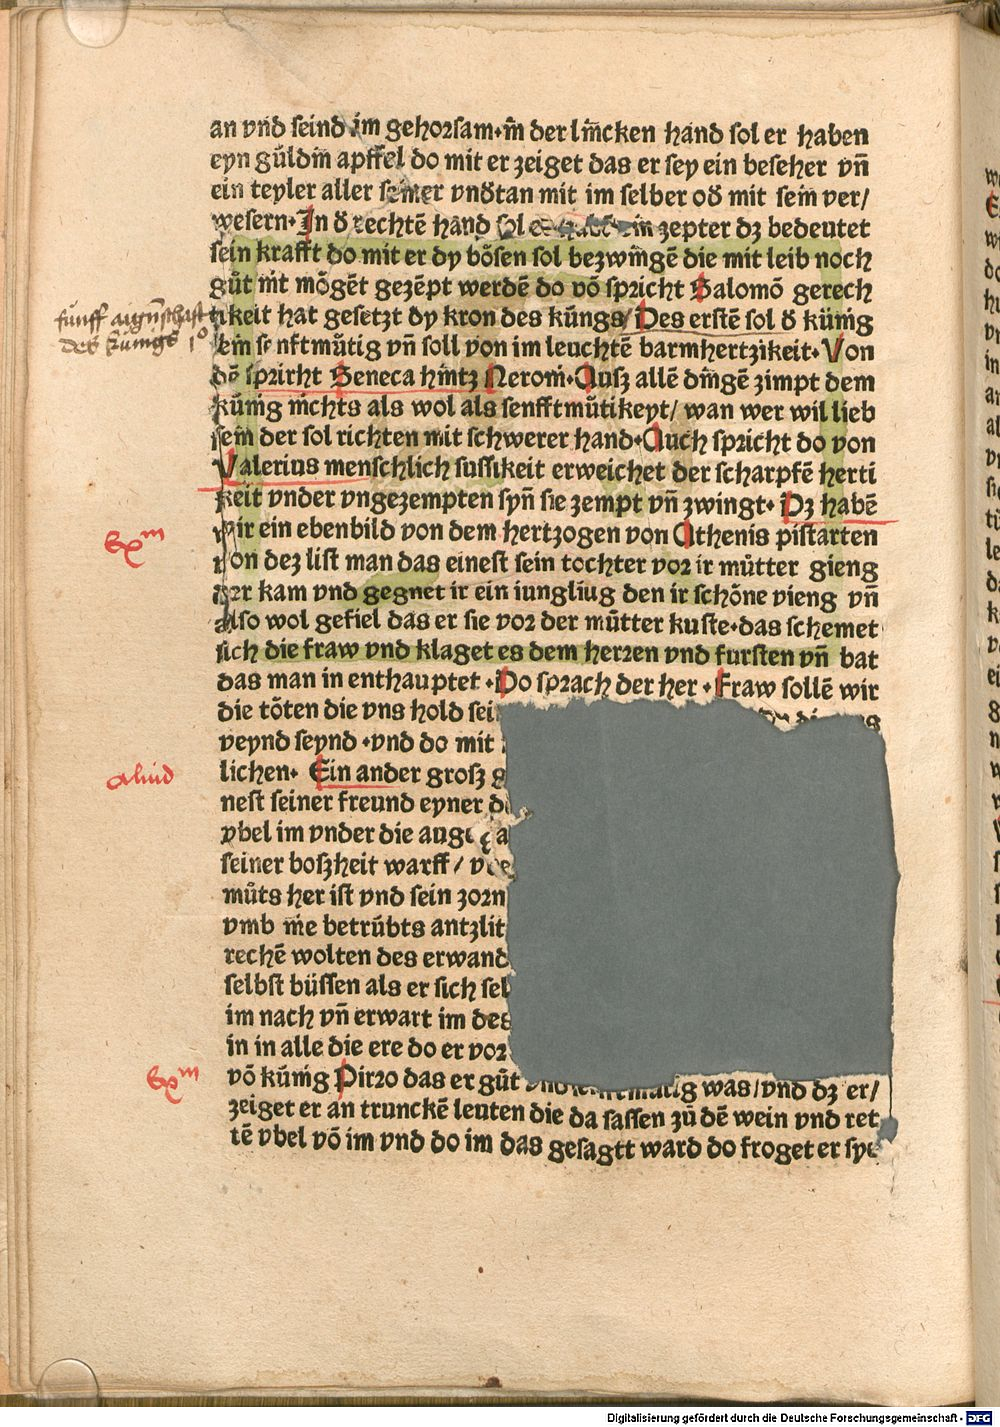 an vnd seind im gehorsam·in der lincken hand sol er haben
eyn güldin apffel do mit er zeiget das er sey ein beseher vn̄
ein teyler aller seiner vndtan mit im selber od mit sein ver/
wesern·In d rechtē hand sol er ein zepter dz bedeutet
sein krafft do mit er dy bösen sol bezwingē die mit leib noch
gůt nit mögēt gezēpt werdē do vō spricht Salomō gerech
fünff aign̄schaft
des künigs 1⁰
tikeit hat gesetzt dy kron des küngs/Des erstē sol d künig
sein senftmütig vn̄ soll von im leuchtē barmhertzikeit·Von
dē spricht Seneca hintz Neroni·Ausz allē dingē zimpt dem
künig nichts als wol als senfftmütikeyt/wan wer wil lieb
sein der sol richten mit schwerer hand·Auch spricht do von
Valerius menschlich sussikeit erweichet der scharpfē herti
keit vnder vngezempten syn̄ sie zempt vn̄ zwingt·Dz habē
Exm
wir ein ebenbild von dem hertzogen von Athenis pistarten
von dez list man das einest sein tochter vor ir můtter gieng
der kam vnd gegnet ir ein iungliug den ir schöne vieng vn̄
also wol gefiel das er sie vor der můtter kuste·das schemet
sich die fraw vnd klaget es dem herren vnd fursten vn̄ bat
das man in enthauptet·Do sprach der her·Fraw sollē wir
die töten die vns hold sei
veynd seynd·vnd do mit
aliud
lichen· Ein ander grosz g
nest seiner freund eyner d
vbel im vnder die auge
seiner boszheit warff/
můts her ist vnd sein zorn
vmb nie betrübts antzlit
rechē wolten des erwand
selbst büssen als er sich sel
im nach vn̄ erwart im des
in in alle die ere do er vor
Exm
vō künig Pirro das er gůt was/vnd dz er/
zeiget er an trunckē leuten die da sassen zů dē wein vnd ret
tē vbel vō im vnd do im das gesagtt ward do froget er
Digitalisierung gefördert durch die Deutsche Forschungsgemeinschaft - DFG